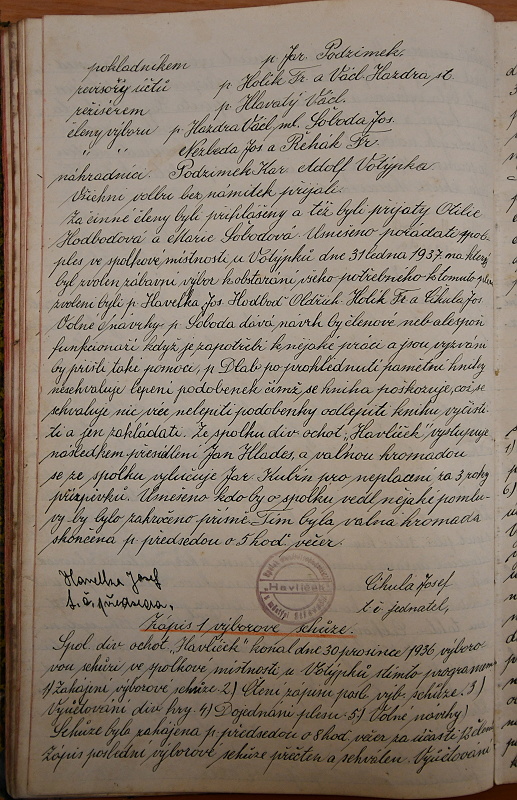 pokladníkem p. Jar. Podzimek.
revisory účtů p. Holík Fr. a Václ. Hazdra, st.
režisérem p. Hlavatý Václ.
členy výboru p. Hazdra Václ. ml. Soboda Jos.
" " Nezbeda Jos. a Řehák Fr.
náhradníci: Podzimek Kar. Adolf Votýpka.
Všichni volbu bez námitek přijali.
Za činné členy byli přihlášeny a též byli přijaty Otilie
Hodbodová a Marie Sobodová. Usneseno pořádati spol.
ples ve spolkové místnosti u Votýpků dne 31 ledna 1937 na který
byl zvolen zábavní výbor k obstarání všeho potřebného k tomuto plesu
zvoleni byli p. Havelka Jos. Hodbod Oldřich Holík Fr. a Cihula Jos.
Volné návrhy p. Soboda dává návrh by členové neb alespoň
funkcionáři když je zapotřebí k nějaké práci a jsou vyzváni
by přišli také pomoci, p. Dlab po prohlédnutí pamětní knihy
neschvaluje lepení podobenek čímž se kniha poškozuje, což se
schvaluje nic více nelepiti podobenky odlepiti knihu vyčisti-
ti a jen zakládati. Ze spolku div. ochot. "Havlíček" vystupuje
následkem přesídlení Jan Hlades, a valnou hromadou
se ze spolku vylučuje Jar. Kubrín pro neplacení za 3 roky
příspívků. Usneseno kdo by o spolku vedl nějaké pomlu-
vy by bylo zakročeno přísně. Tím byla valná hromada
skončena p. předsedou o 5 hod. večer.
Havelka Josef Cihula Josef
t. č. předseda. t. č. jednatel,
"Havlíček"
Zápis 1 výborové schůze.
Spol. div. ochot. "Havlíček" konal dne 30 prosince 1936 výboro-
vou schůzi ve spolkové místnosti u Votýpků s tímto programem
1) Zahájení výborové schůze 2) Čtení zápisu posl. výb. schůze. 3)
Vyúčtování div. hry. 4) Dojednání plesu. 5) Volné návrhy)
Schůze byla zahájena p. předsedou o 8 hod. večer za účasti 12 členů
Zápis poslední výborové schůze přečten a schválen. Vyúčtování